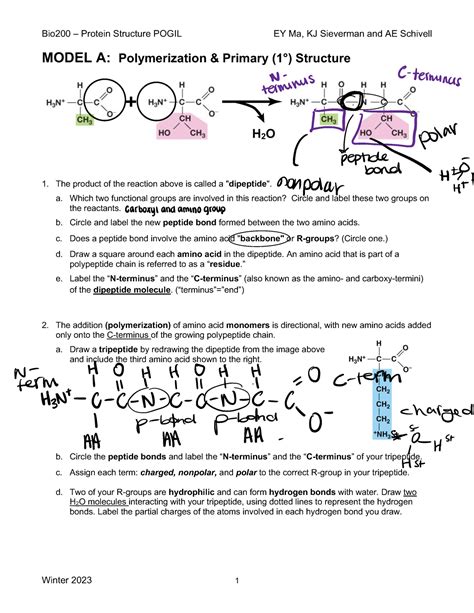 Bio200 – Protein Structure POGIL EY Ma, KJ Sieverman and AE Schivell
MODEL A: Polymerization & Primary (1°) Structure
N-terminus C-terminus
H H H O H H
H₃N⁺ C C O + H₃N⁺ C C O H₃N⁺ C C N C C O
O⁻ O⁻ O⁻
CH₃ CH CH₃ CH
HO CH₃ H₂O HO CH₃
polar
peptide bond
nonpolar
1. The product of the reaction above is called a "dipeptide".
a. Which two functional groups are involved in this reaction? Circle and label these two groups on
the reactants. Carboxyl and amino group
b. Circle and label the new peptide bond formed between the two amino acids.
c. Does a peptide bond involve the amino acid "backbone" or R-groups? (Circle one.)
d. Draw a square around each amino acid in the dipeptide. An amino acid that is part of a
polypeptide chain is referred to as a “residue.”
e. Label the “N-terminus” and the “C-terminus” (also known as the amino- and carboxy-termini)
of the dipeptide molecule. (“terminus”=”end”)
2. The addition (polymerization) of amino acid monomers is directional, with new amino acids added
only onto the C-terminus of the growing polypeptide chain.
a. Draw a tripeptide by redrawing the dipeptide from the image above
and include the third amino acid shown to the right.
H
H₃N⁺ C C O
O⁻
CH₂
CH₂
CH₂
⁺NH₃
N-term H O H H O H H C-term
H₃N⁺ - C - C - N - C - C - N - C - C = O
O⁻
p-bond p-bond
AA AA AA
charged
b. Circle the peptide bonds and label the “N-terminus” and the “C-terminus” of your tripeptide.
c. Assign each term: charged, nonpolar, and polar to the correct R-group in your tripeptide.
d. Two of your R-groups are hydrophilic and can form hydrogen bonds with water. Draw two
H₂O molecules interacting with your tripeptide, using dotted lines to represent the hydrogen
bonds. Label the partial charges of the atoms involved in each hydrogen bond you draw.
Winter 2023 1